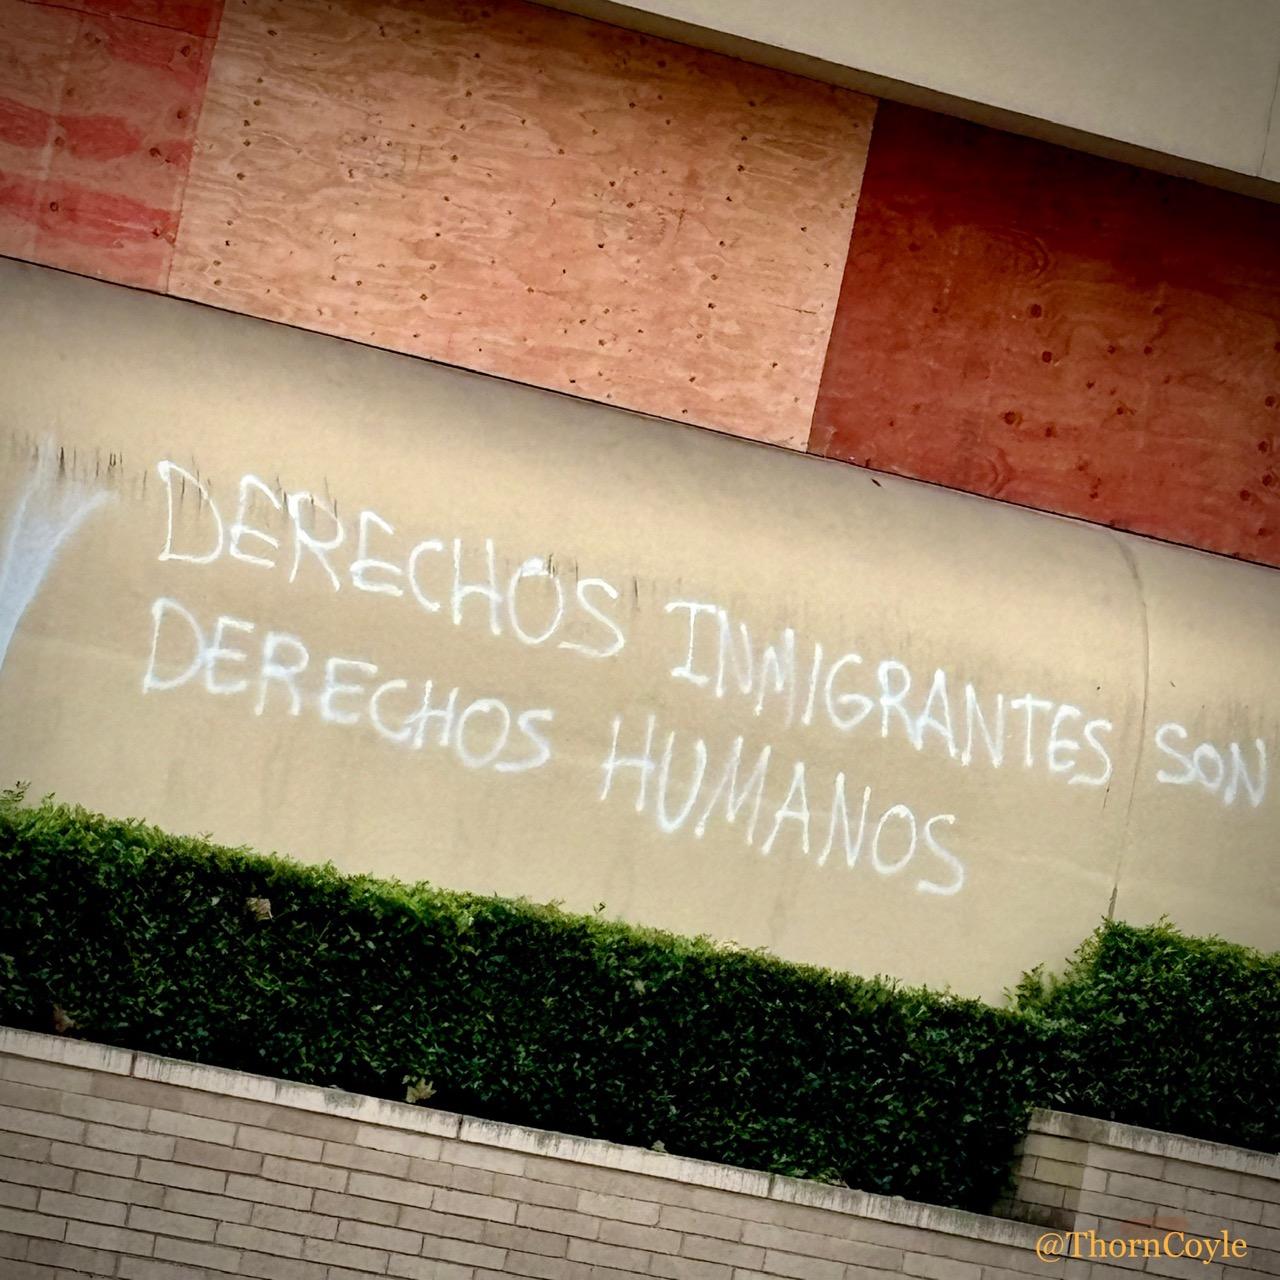 DERECHOS INMIGRANTES SON
DERECHOS HUMANOS
@ThornCoyle